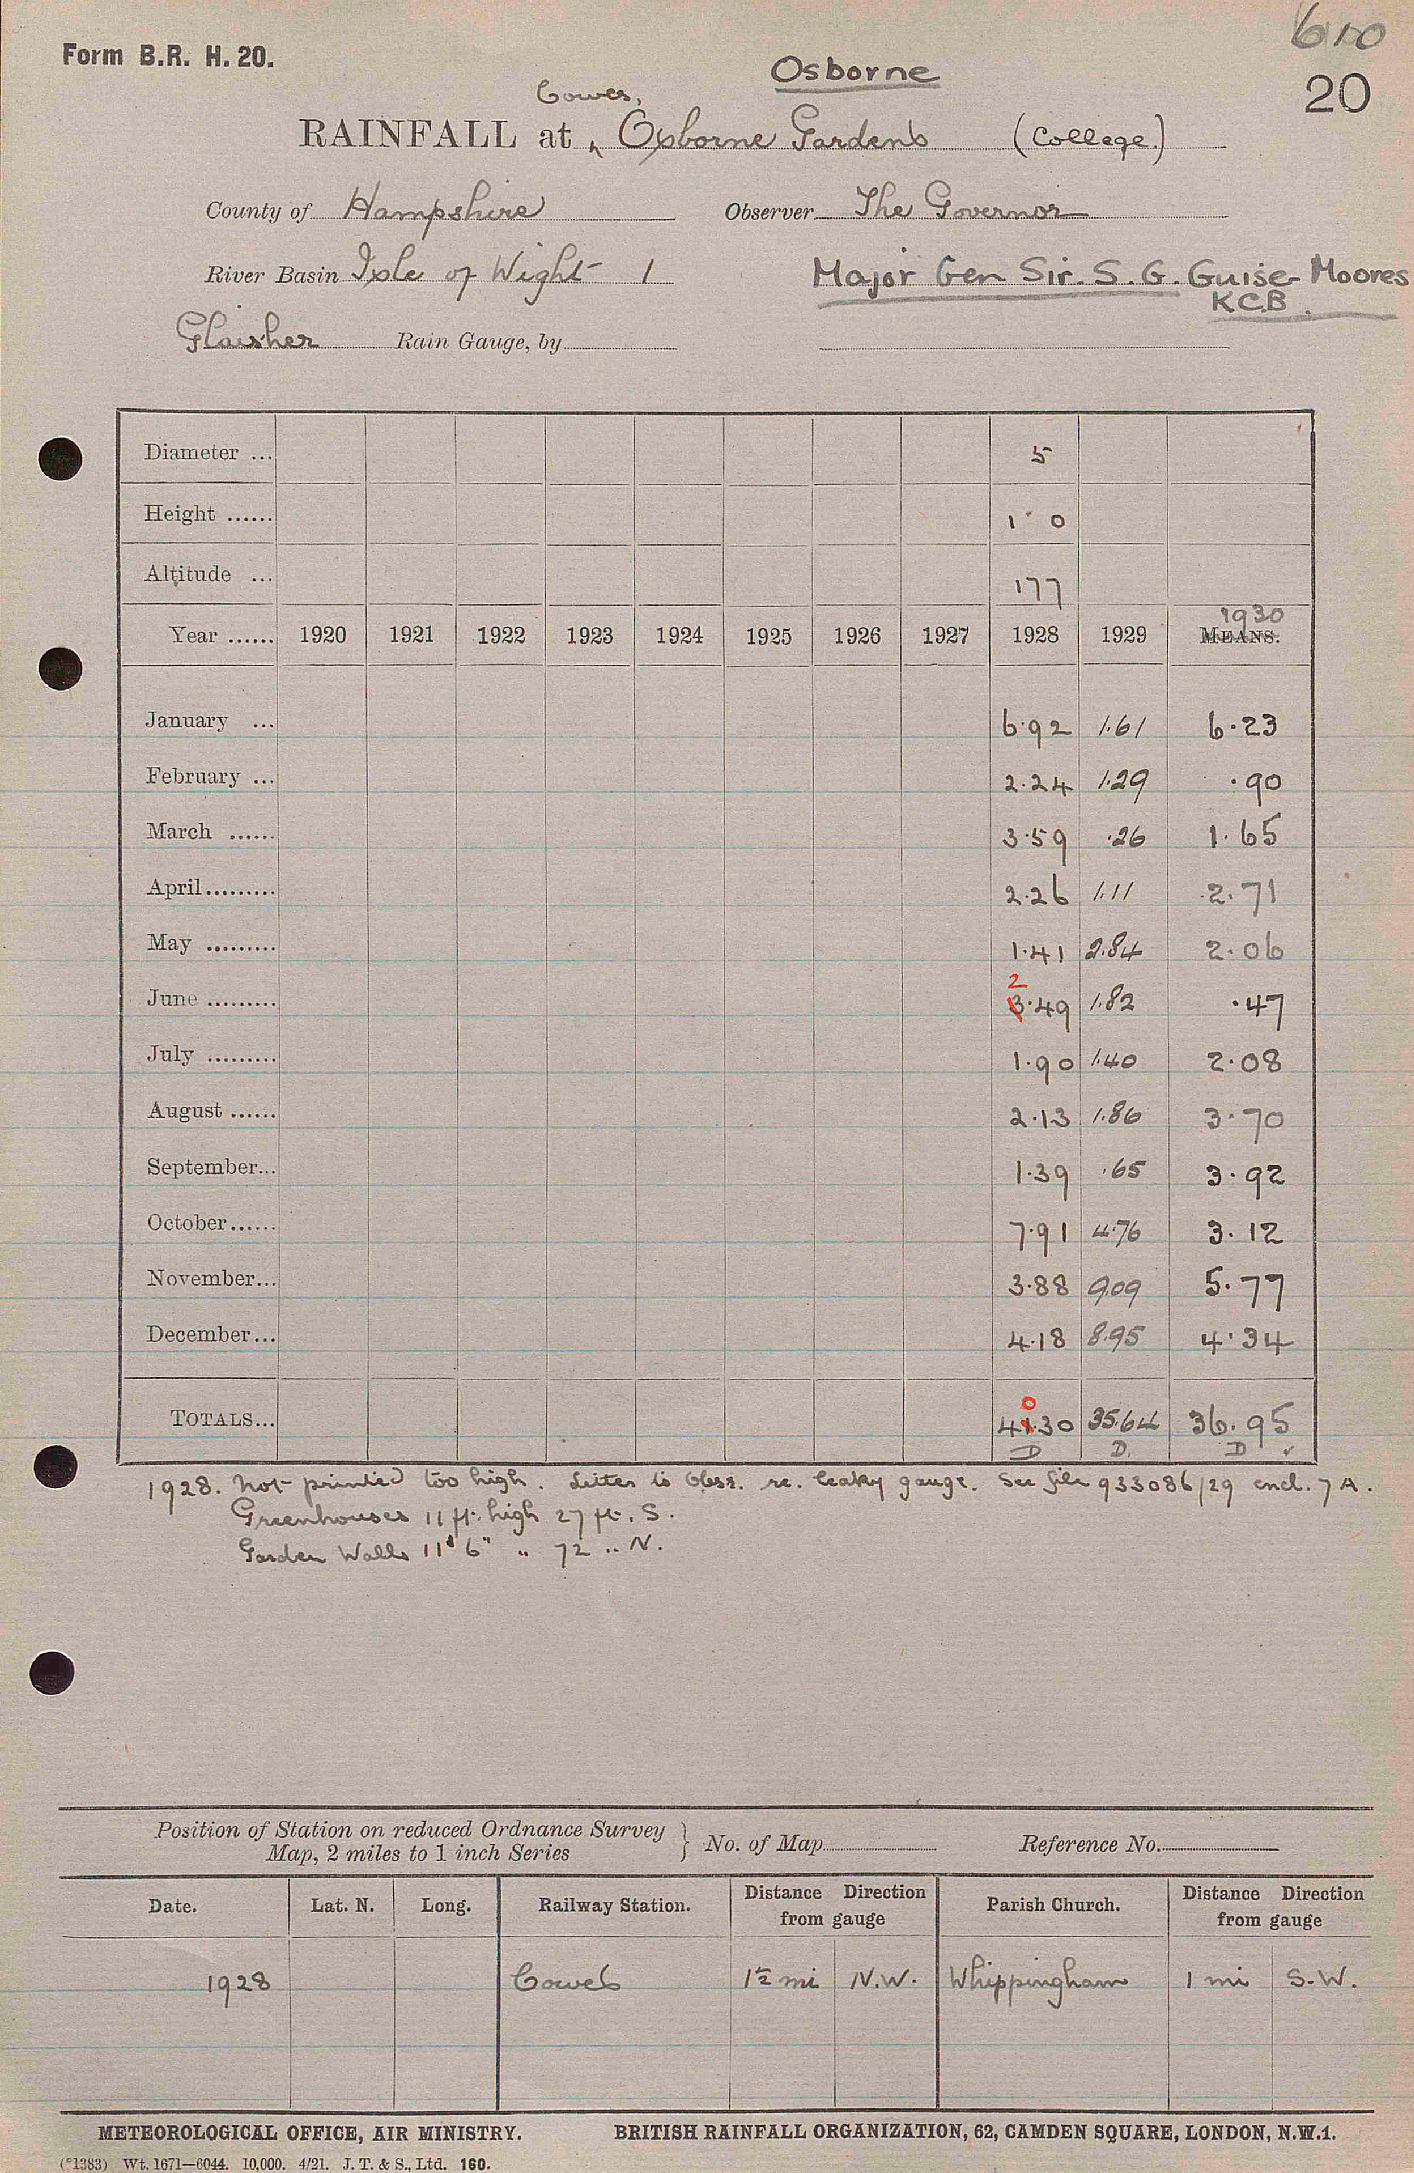 610
Form B.R. H. 20.
Osborne
20
Cowes,
RAINFALL at Osborne Gardens (College.)
County of Hampshire Observer The Governor
River Basin Isle of Wight 1 Major Gen Sir. S. G. Guise-Moores
K.C.B.
Glaisher Rain Gauge, by
Diameter ... 5
Height ...... 1 0
Altitude ... 177
1930
Year ...... 1920 1921 1922 1923 1924 1925 1926 1927 1928 1929 MEANS.
January ... 6.92 1.61 6.23
February ... 2.24 1.29 .90
March ...... 3.59 .26 1.65
April ......... 2.26 1.11 2.71
May ......... 1.41 2.84 2.06
2
June ......... 3.49 1.82 .47
July ......... 1.90 1.40 2.08
August ...... 2.13 1.86 3.70
September... 1.39 .65 3.92
October...... 7.91 4.76 3.12
November... 3.88 9.09 5.77
December... 4.18 8.95 4.34
0
TOTALS... 41.30 35.64 36.95
D D. D ✓
1928. Not printed too high. Letter to Obsr. re. leaky gauge. See file 933086/29 encl. 7A.
Greenhouses 11 ft. high 27 ft. S.
Garden Walls 11' 6" " 72 " N.
Position of Station on reduced Ordnance Survey
Map, 2 miles to 1 inch Series } No. of Map Reference No.
Date. Lat. N. Long. Railway Station. Distance Direction from gauge Parish Church. Distance Direction from gauge
1928 Cowes 1½ mi N.W. Whippingham 1 mi S.W.
METEOROLOGICAL OFFICE, AIR MINISTRY. BRITISH RAINFALL ORGANIZATION, 62, CAMDEN SQUARE, LONDON, N.W.1.
(*1383) Wt. 1671—6044. 10,000. 4/21. J. T. & S., Ltd. 160.